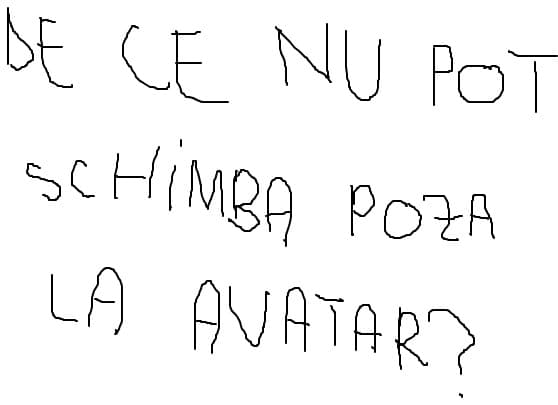 DE CE NU POT
SCHiMBA POZA
LA AVATAR?